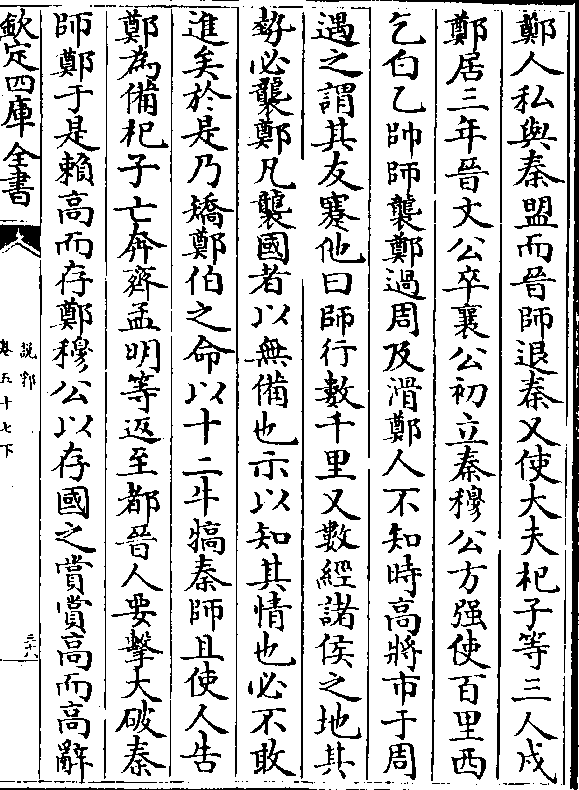 鄭人私與秦盟而晉師退秦又使大夫杞子等三人戍
鄭居三年晉文公卒襄公初立秦穆公方强使百里西
乞白乙帥師襲鄭過周及滑鄭人不知時高將市于周
遇之謂其友蹇他曰師行數千里又數經諸侯之地其
勢必襲鄭凡襲國者以無備也示以知其情也必不敢
進矣於是乃矯鄭伯之命以十二牛犒秦師且使人告
鄭為備杞子亡奔齊孟明等返至都晉人要擊大破秦
師鄭于是賴高而存鄭穆公以存國之賞賞高而高辭
欽定四庫全書
說郛
卷五十七下
三十八